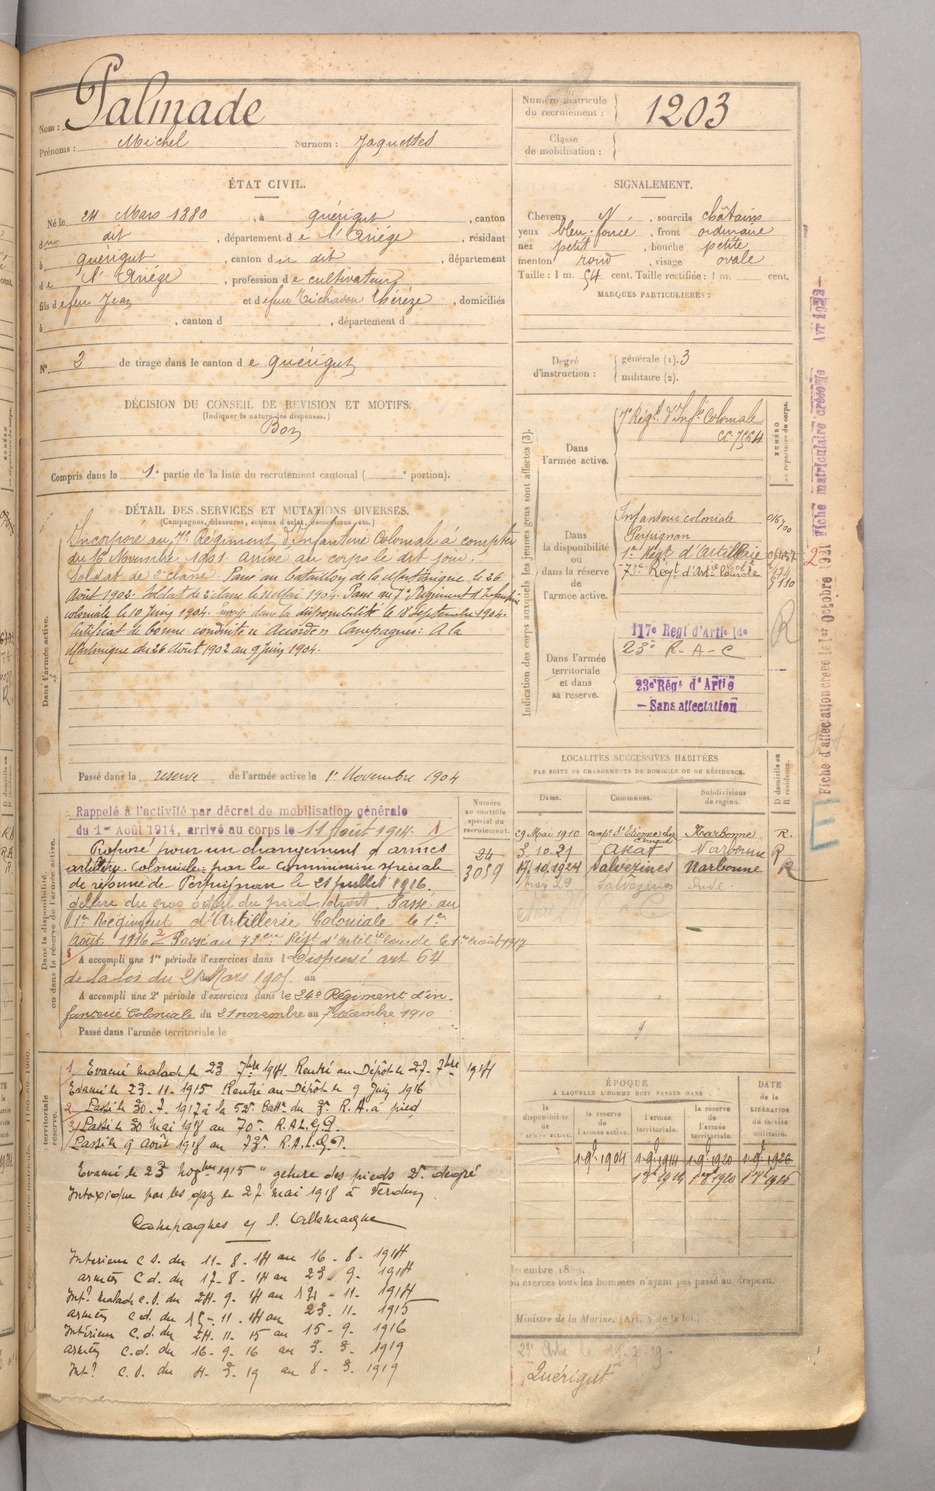 Nom : Palmade
Prénoms : Michel Surnom : Jaquettes
Numéro matricule du recrutement : 1203
Classe de mobilisation :
ÉTAT CIVIL.
Né le 24 Mars 1880, à Quérigut, canton
du dit, département de l'Ariége, résidant
à Quérigut, canton du dit, département
de l'Ariége, profession de cultivateur
fils de feu Jean et de feue Thérèze, domiciliés
à , canton d , département d
N° 2 de tirage dans le canton de Quérigut
SIGNALEMENT.
Cheveux N., sourcils châtains
yeux bleu-foncé, front ordinaire
nez petit, bouche petite
menton rond, visage ovale
Taille : 1 m. 54 cent. Taille rectifiée : 1 m. cent.
MARQUES PARTICULIÈRES :
Degré d'instruction : générale (1). 3
militaire (2).
DÉCISION DU CONSEIL DE RÉVISION ET MOTIFS.
(Indiquer la nature des dispenses.)
Bon
Compris dans la 1e partie de la liste du recrutement cantonal ( e portion).
DÉTAIL DES SERVICES ET MUTATIONS DIVERSES.
(Campagnes, blessures, actions d'éclat, décorations, etc.)
Dans l'armée active.
Incorporé au 7e Régiment d'Infanterie Coloniale à compter
du 16 Novembre 1901 arrivé au corps le dit jour.
Soldat de 2e classe. Passé au bataillon de la Martinique le 26
Août 1902. Soldat de 2e classe le 11 Mai 1904. Passé au 7e Régiment d'Infanterie
coloniale le 10 Juin 1904. Envoyé dans la disponibilité le 18 Septembre 1904.
Certificat de bonne conduite "Accordé". Campagnes : A la
Martinique du 26 Août 1902 au 9 juin 1904.
Passé dans la reserve de l'armée active le 1er Novembre 1904
Indication des corps auxquels les jeunes gens sont affectés (3).
NUMÉRO au répertoire du corps.
Dans l'armée active.
7e Régt d'Infie Coloniale
CC. 7564
Dans la disponibilité ou dans la réserve de l'armée active.
Infanterie coloniale
Perpignan
1er Régt d'Artillerie
73e Régt d'Artie lourde
Dans l'armée territoriale et dans sa reserve.
117e Régt d'Artie lde
23e R-A-C
23e Régt d'Artie
— Sans affectation
Fiche d'affectation créée le 1er Octobre 1931 Fiche matriculaire créée le Avr 1932
Dans la disponibilité ou dans la réserve de l'armée active.
Numéro au contrôle spécial du recrutement.
24
3059
Rappelé à l'activité par décret de mobilisation générale
du 1er Août 1914, arrivé au corps le 11 Août 1914. 1
Proposé pour un changement d'armes
artillerie Coloniale par la Commission spéciale
de réforme de Perpignan le 21 Juillet 1916.
gelure du gros orteil du pied droit. Passé au
1er Régiment d'Artillerie Coloniale le 1er
Août 1916 2 Passé au 73e Régt d'Artie lourde le 1er Août 1917
A accompli une 1re période d'exercices dans l Dispensé art 64
de la loi du 21 Mars 1905 au
A accompli une 2e période d'exercices dans le 24e Régiment d'in-
fanterie Coloniale du 21 novembre au 7 décembre 1910
Passé dans l'armée territoriale le
LOCALITÉS SUCCESSIVES HABITÉES
PAR SUITE DE CHANGEMENTS DE DOMICILE OU DE RÉSIDENCE.
Dates. Communes. Subdivisions de région. D domicile ou R résidence.
29 Mai 1910 Narbonne R.
3.10.21 Axat Narbonne R
17.10.1924 Salvezines Narbonne R
Salvezines dude
ÉPOQUE
À LAQUELLE L'HOMME DOIT PASSER DANS :
DATE de la LIBÉRATION DU SERVICE militaire.
la disponibilité de l'armée active. la réserve de l'armée active. l'armée territoriale. la réserve de l'armée territoriale.
territoriale réserve.
1 Evacué malade le 23 7bre 1914 Rentré au Dépôt le 27 7bre 1914
Evacué le 23-11-1915 Rentré au Dépôt le 9 Juin 1916
2 Passé le 30.7.1917 à la 52e Batt. du 3e R.A. à pied
3 Passé le 30 mai 1918 au 70e R.A.L.G.P.
Passé le 9 Août 1918 au 73e R.A.L.G.P.
Evacué le 23 Novbre 1915 "gelure des pieds 2e degré
Intoxiqué par les gaz le 27 mai 1918 à Verdun
Campagnes c/ l'Allemagne
Intérieur C.S. du 11-8-14 au 16-8-1914
armées C.d. du 17-8-14 au 23-9-1914
Intr malade C.S. du 24-9-14 au 14-11-1914
armées C.d. du 15-11-14 au 23-11-1915
Intérieur C.d. du 24-11-15 au 15-9-1916
armées C.d. du 16-9-16 au 3-3-1919
Intr C.S. du 4-3-19 au 8-3-1919
Ministre de la Marine. (Art. 3 de la loi.)
Quérigut